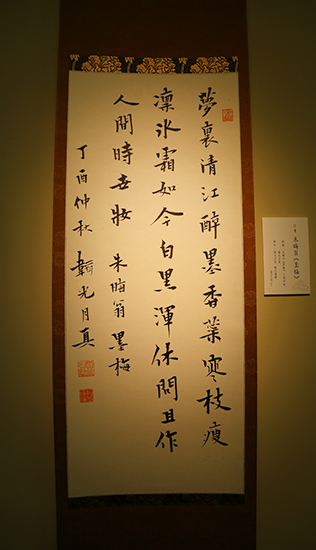 夢裏清江醉墨香蘂寒枝瘦
凜氷霜如今白黑渾休問且作
人間時世妝 朱晦翁 墨梅
丁酉仲秋 韓光月真
朱晦翁《墨梅》